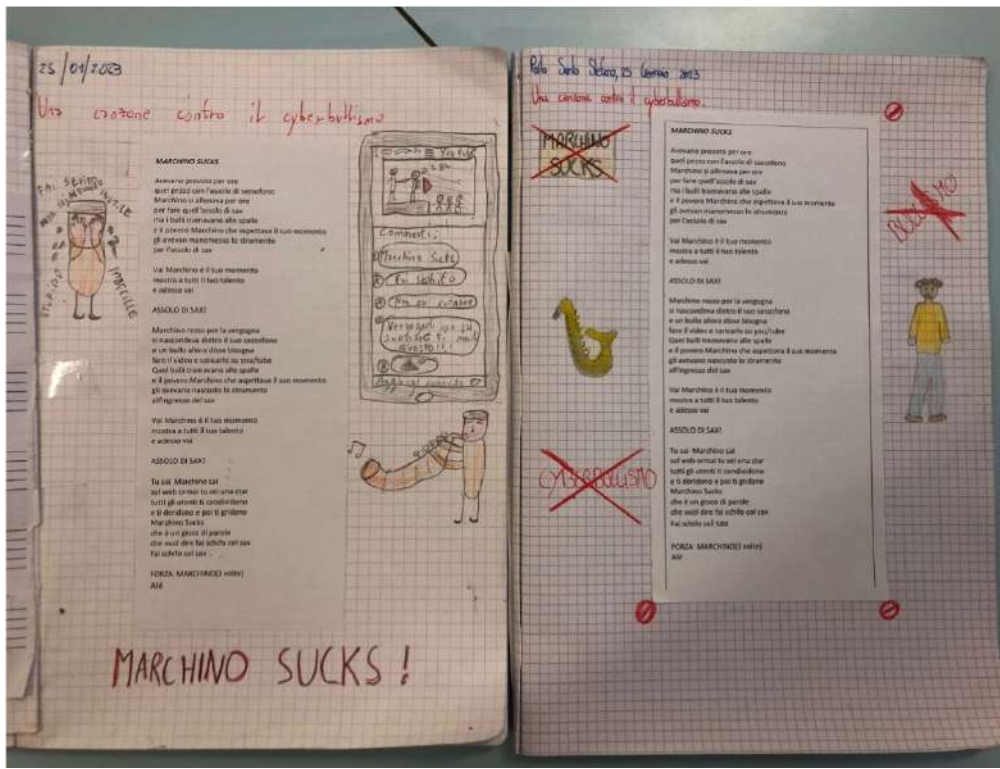 25/01/2023
Una canzone contro il cyberbullismo
FAI SCHIFO
INUTILE
IMBECILLE
STUPIDO
MARCHINO SUCKS
Avevano provato per ore
quel pezzo con l'assolo di sassofono
Marchino si allenava per ore
per fare quell'assolo di sax
ma i bulli tramavano alle spalle
e il povero Marchino che aspettava il suo momento
gli avevan manomesso lo strumento
per l'assolo di sax
Vai Marchino è il tuo momento
mostra a tutti il tuo talento
e adesso vai
ASSOLO DI SAX!
Marchino rosso per la vergogna
si nascondeva dietro il suo sassofono
e un bullo allora disse bisogna
fare il video e caricarlo su you/tube
Quei bulli tramavano alle spalle
e il povero Marchino che aspettava il suo momento
gli avevano nascosto lo strumento
all'ingresso del sax
Vai Marchino è il tuo momento
mostra a tutti il tuo talento
e adesso vai
ASSOLO DI SAX!
Tu sai Marchino sai
sul web ormai tu sei una star
tutti gli utenti ti condividono
e ti deridono e poi ti gridano
Marchino Sucks
che è un gioco di parole
che vuol dire fai schifo col sax
Fai schifo col sax
FORZA MARCHINO(3 volte)
Alè
Commenti:
Marchino Sucks
Fai schifo
Vergognati
MARCHINO SUCKS!
Porto Santo Stefano, 25 Gennaio 2023
Una canzone contro il cyberbullismo.
MARCHINO SUCKS
BULLISMO
CYBERBULLISMO
MARCHINO SUCKS
Avevano provato per ore
quel pezzo con l'assolo di sassofono
Marchino si allenava per ore
per fare quell'assolo di sax
ma i bulli tramavano alle spalle
e il povero Marchino che aspettava il suo momento
gli avevan manomesso lo strumento
per l'assolo di sax
Vai Marchino è il tuo momento
mostra a tutti il tuo talento
e adesso vai
ASSOLO DI SAX!
Marchino rosso per la vergogna
si nascondeva dietro il suo sassofono
e un bullo allora disse bisogna
fare il video e caricarlo su you/tube
Quei bulli tramavano alle spalle
e il povero Marchino che aspettava il suo momento
gli avevano nascosto lo strumento
all'ingresso del sax
Vai Marchino è il tuo momento
mostra a tutti il tuo talento
e adesso vai
ASSOLO DI SAX!
Tu sai Marchino sai
sul web ormai tu sei una star
tutti gli utenti ti condividono
e ti deridono e poi ti gridano
Marchino Sucks
che è un gioco di parole
che vuol dire fai schifo col sax
Fai schifo col sax
FORZA MARCHINO(3 volte)
Alè